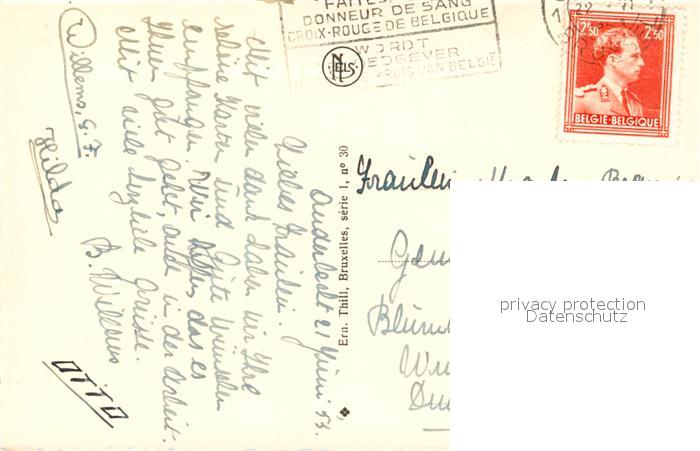 FAITES
DONNEUR DE SANG
CROIX-ROUGE DE BELGIQUE
WORDT
VAN BELGIË
NELS
2F50 2F50
BELGIE-BELGIQUE
Ern. Thill, Bruxelles, série 1, n° 30
Anderlecht 21 Juni 53.
Liebes Fräulein.
Mit vielen dank haben wir Ihre
schöne Karten und Gute wünschen
empfangen. Wir hoffen das es
Ihnen gut geht, auch in der arbeit.
Mit viele herzliche Grüsse.
B. Willems
Willems, G. F.
Hilda
OTTO
Fräulein
privacy protection
Datenschutz